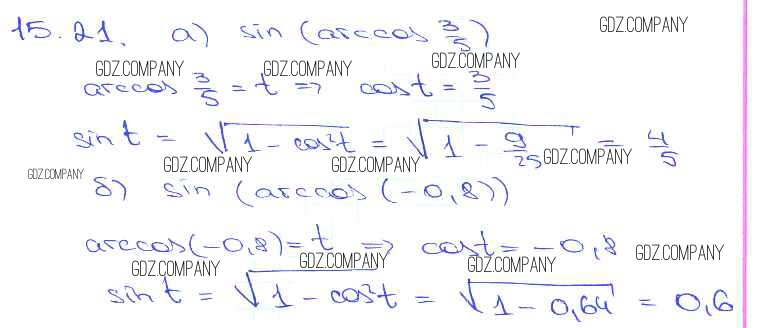 15.21. а) sin (arccos 3/5) GDZ.COMPANY
GDZ.COMPANY GDZ.COMPANY GDZ.COMPANY
arccos 3/5 = t => cos t = 3/5
sin t = √(1 - cos²t) = √(1 - 9/25) = 4/5
GDZ.COMPANY GDZ.COMPANY GDZ.COMPANY
GDZ.COMPANY б) sin (arccos (-0,8))
arccos(-0,8) = t => cos t = -0,8 GDZ.COMPANY
GDZ.COMPANY GDZ.COMPANY GDZ.COMPANY
sin t = √(1 - cos²t) = √(1 - 0,64) = 0,6